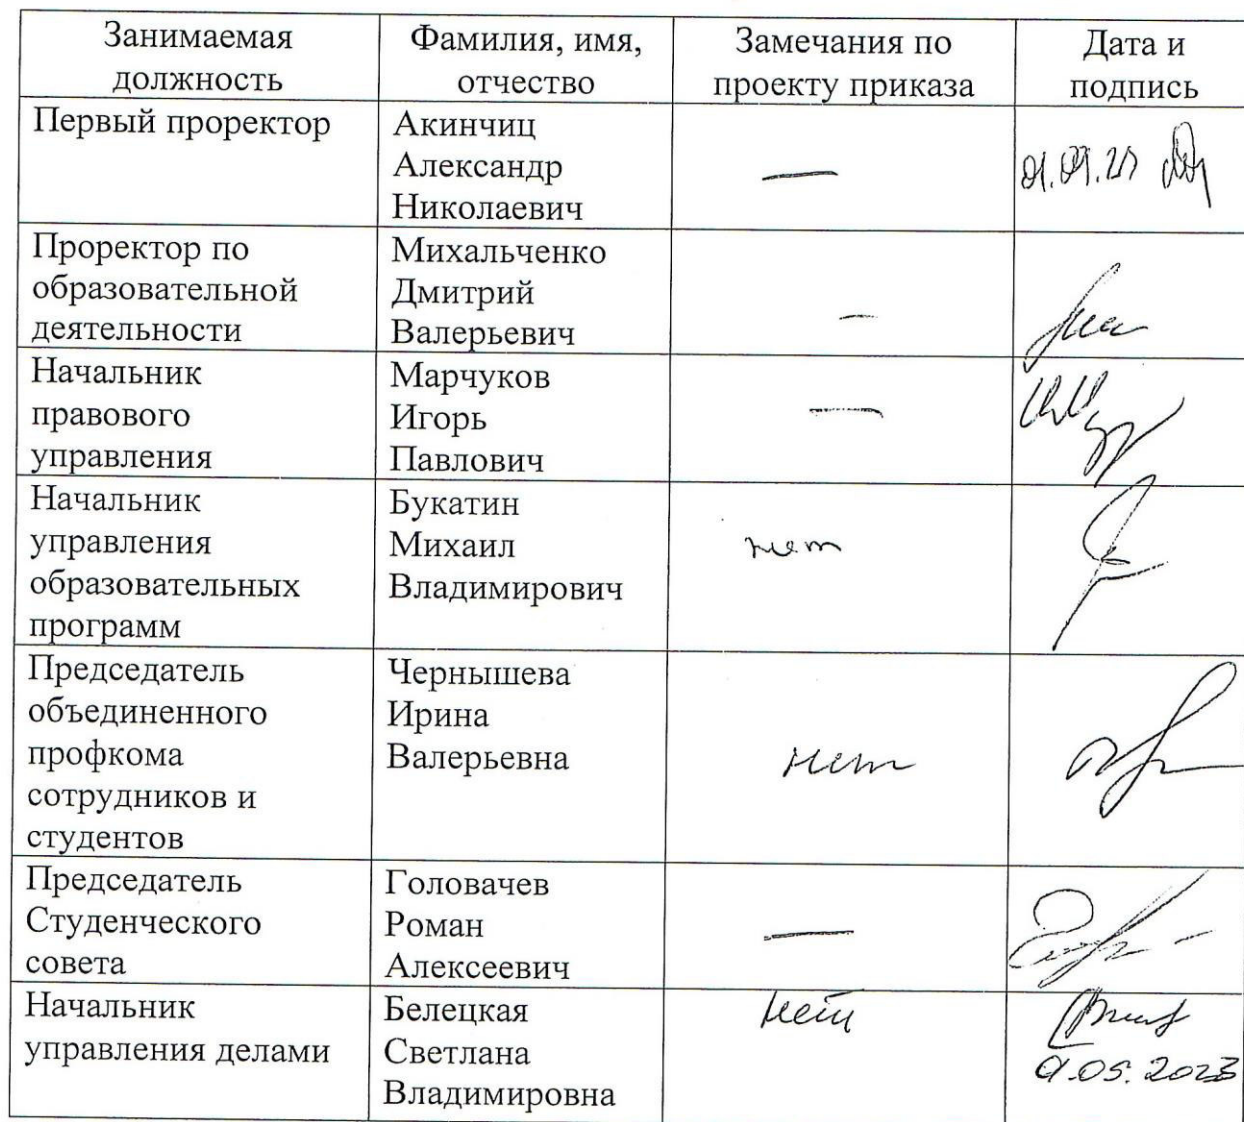 Занимаемая должность
Фамилия, имя, отчество
Замечания по проекту приказа
Дата и подпись
Первый проректор
Акинчиц
Александр
Николаевич
—
Проректор по
образовательной
деятельности
Михальченко
Дмитрий
Валерьевич
—
Начальник
правового
управления
Марчуков
Игорь
Павлович
—
Начальник
управления
образовательных
программ
Букатин
Михаил
Владимирович
нет
Председатель
объединенного
профкома
сотрудников и
студентов
Чернышева
Ирина
Валерьевна
нет
Председатель
Студенческого
совета
Головачев
Роман
Алексеевич
—
Начальник
управления делами
Белецкая
Светлана
Владимировна
нет